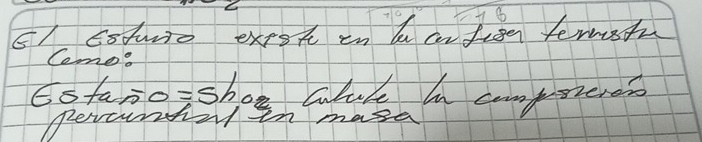 El Estaño existe en la corteza terrestre
Como:
Estaño = SnO2 Calcule la composición
porcentual en masa